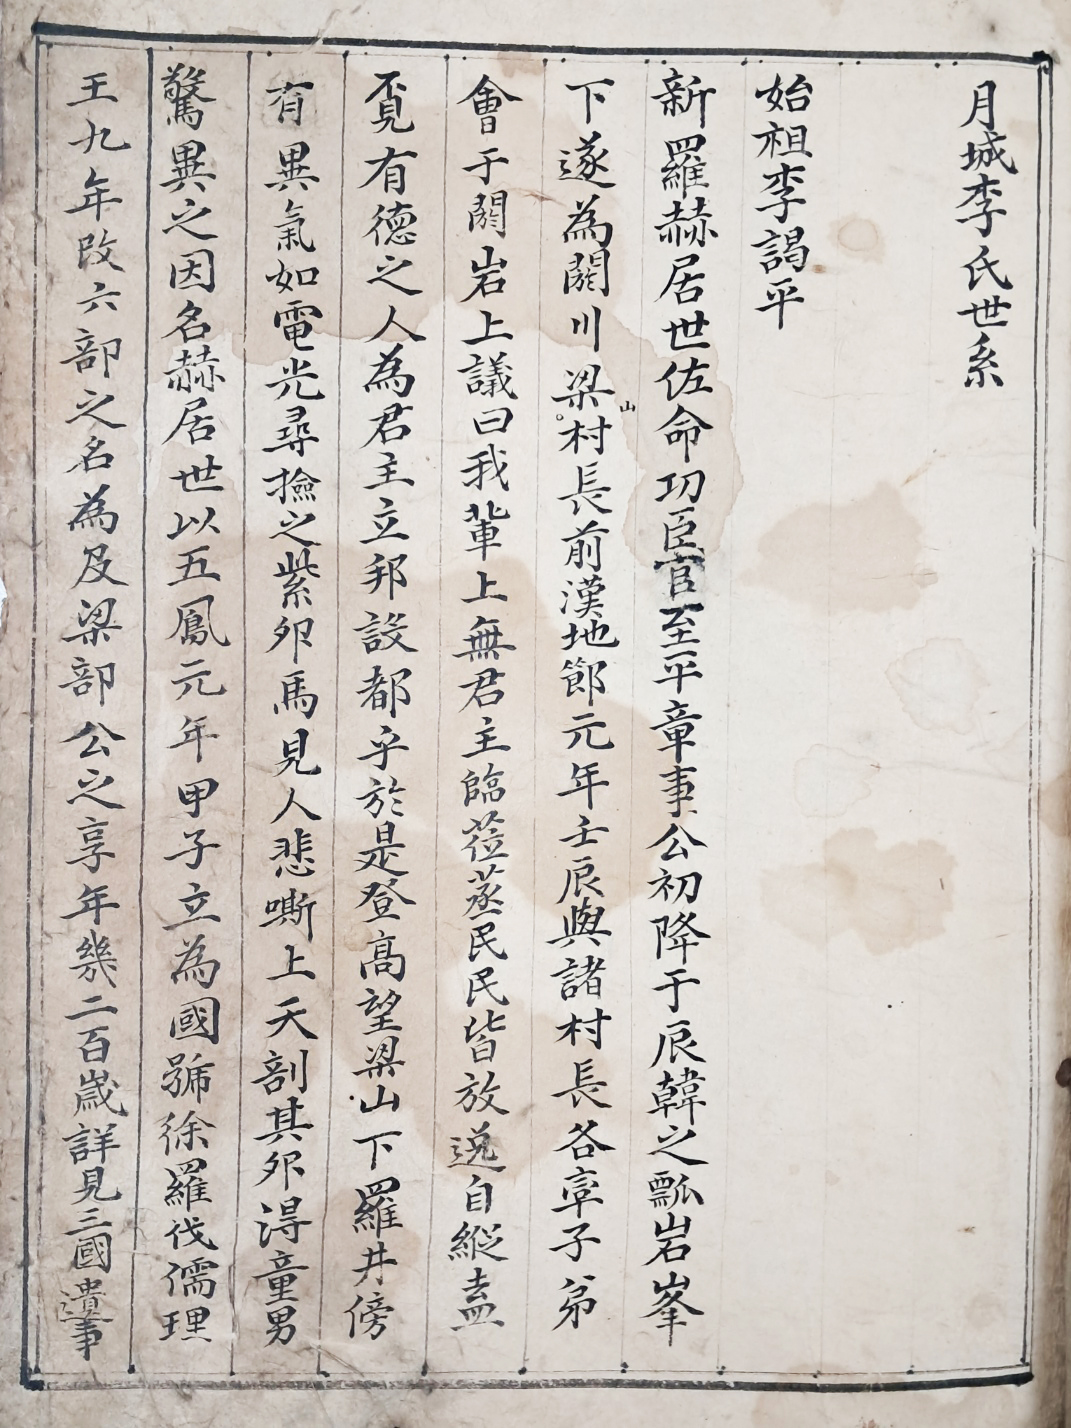 月城李氏世系
始祖李謁平
新羅赫居世佐命功臣官至平章事公初降于辰韓之瓢岩峯
下遂為閼川梁山村長前漢地節元年壬辰與諸村長各率子弟
會于閼岩上議曰我軰上無君主臨莅蒸民民皆放逸自縱盍
覔有德之人為君主立邦設都乎於是登高望梁山下羅井傍
有異氣如電光尋撿之紫卵馬見人悲嘶上天剖其卵得童男
驚異之因名赫居世以五鳳元年甲子立為國號徐羅伐儒理
王九年改六部之名為及梁部公之享年幾二百歲詳見三國遺事